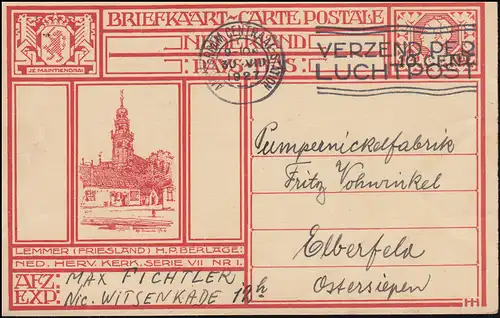 BRIEFKAART-CARTE POSTALE
JE MAINTIENDRAI
NEDERLAND
PAYS-BAS
10 CENT
AMSTERDAM CENTRAAL STATION
30 VIII
1927
VERZEND PER
LUCHTPOST
Pumpernickelfabrik
Fritz Vohwinkel
Elberfeld
Ostersiepen
LEMMER (FRIESLAND) H.P. BERLAGE:
NED. HERV. KERK. SERIE VII NR 1.
AFZ.
EXP:
MAX FICHTLER
Nic. WITSENKADE 12h